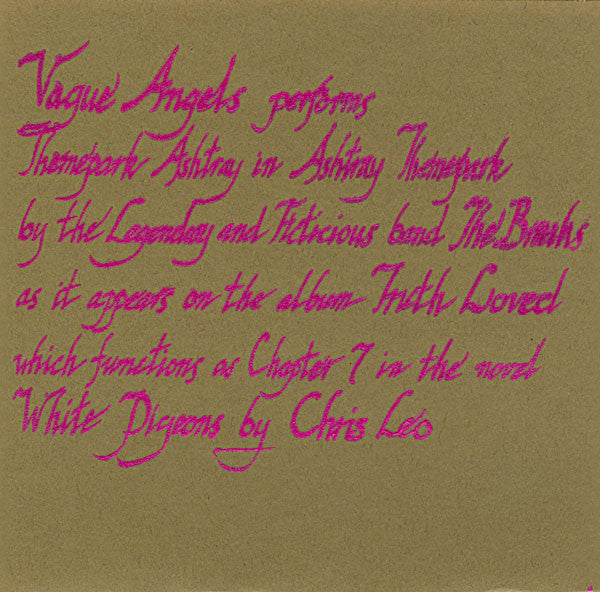 Vague Angels performs
Themepark Ashtray in Ashtray Themepark
by the Legenday and Ficticious band The
as it appears on the album Truth Loved
which functions as Chapter 7 in the novel
White Pigeons by Chris Leo